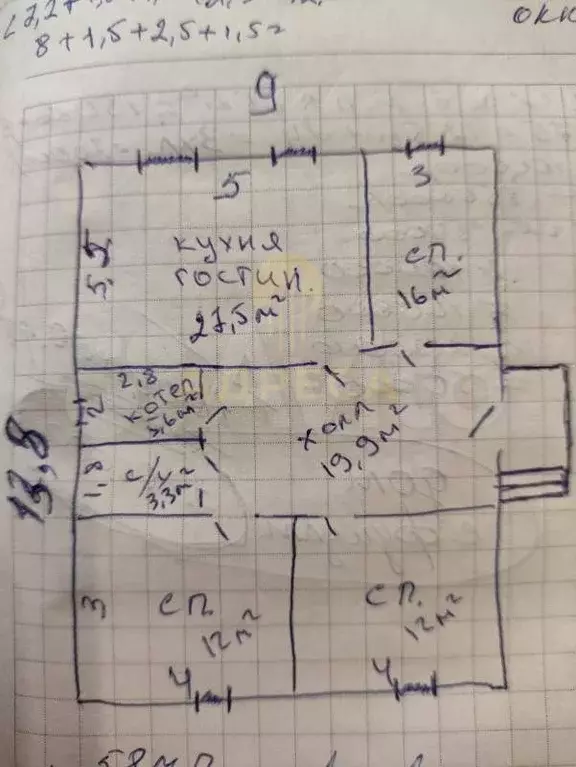 8+1,5+2,5+1,5=
окн
9
5
3
5,5
кухня
гостин.
27,5 м²
сп.
16 м²
2,8
2
котел.
5,6 м²
холл
19,9 м²
13,8
1,8
с/у
3,3 м²
3
сп.
12 м²
сп.
12 м²
4
4